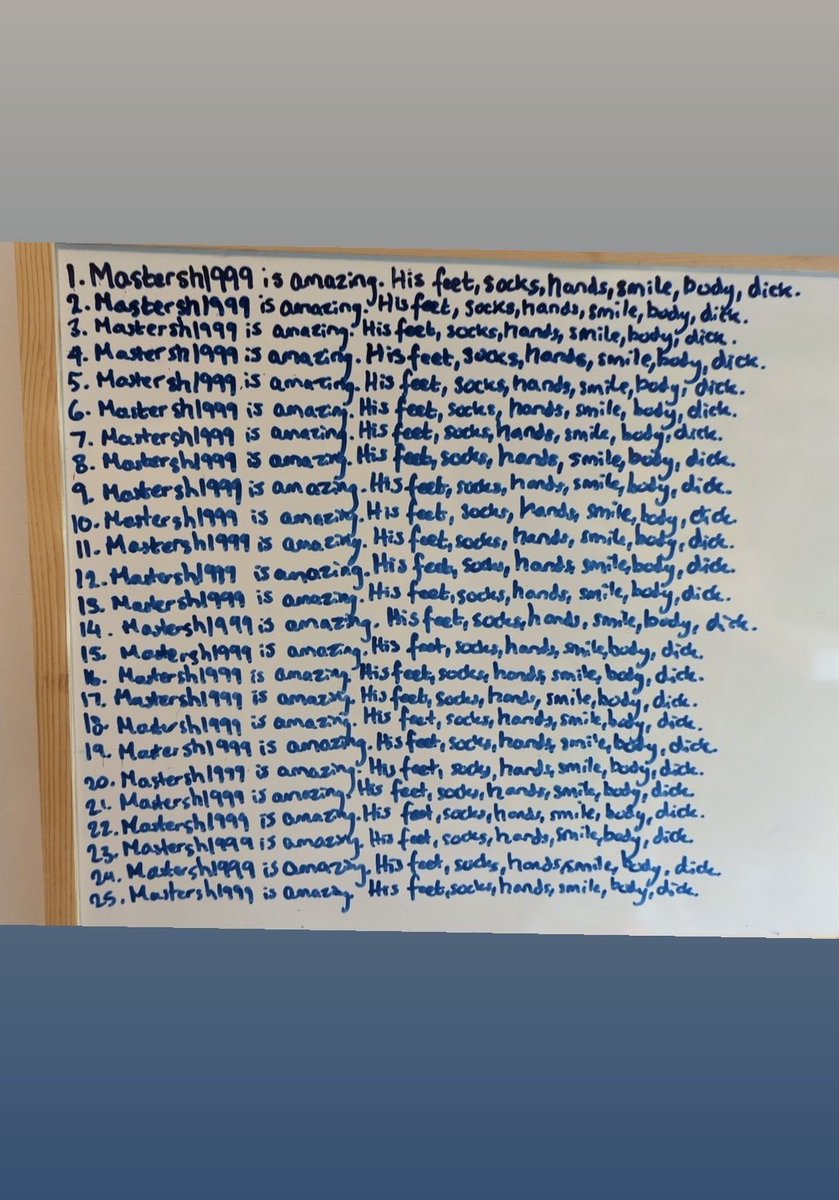 1. Mastersh1999 is amazing. His feet, socks, hands, smile, body, dick.
2. Mastersh1999 is amazing. His feet, socks, hands, smile, body, dick.
3. Mastersh1999 is amazing. His feet, socks, hands, smile, body, dick.
4. Mastersh1999 is amazing. His feet, socks, hands, smile, body, dick.
5. Mastersh1999 is amazing. His feet, socks, hands, smile, body, dick.
6. Mastersh1999 is amazing. His feet, socks, hands, smile, body, dick.
7. Mastersh1999 is amazing. His feet, socks, hands, smile, body, dick.
8. Mastersh1999 is amazing. His feet, socks, hands, smile, body, dick.
9. Mastersh1999 is amazing. His feet, socks, hands, smile, body, dick.
10. Mastersh1999 is amazing. His feet, socks, hands, smile, body, dick.
11. Mastersh1999 is amazing. His feet, socks, hands, smile, body, dick.
12. Mastersh1999 is amazing. His feet, socks, hands, smile, body, dick.
13. Mastersh1999 is amazing. His feet, socks, hands, smile, body, dick.
14. Mastersh1999 is amazing. His feet, socks, hands, smile, body, dick.
15. Mastersh1999 is amazing. His feet, socks, hands, smile, body, dick.
16. Mastersh1999 is amazing. His feet, socks, hands, smile, body, dick.
17. Mastersh1999 is amazing. His feet, socks, hands, smile, body, dick.
18. Mastersh1999 is amazing. His feet, socks, hands, smile, body, dick.
19. Mastersh1999 is amazing. His feet, socks, hands, smile, body, dick.
20. Mastersh1999 is amazing. His feet, socks, hands, smile, body, dick.
21. Mastersh1999 is amazing. His feet, socks, hands, smile, body, dick.
22. Mastersh1999 is amazing. His feet, socks, hands, smile, body, dick.
23. Mastersh1999 is amazing. His feet, socks, hands, smile, body, dick.
24. Mastersh1999 is amazing. His feet, socks, hands, smile, body, dick.
25. Mastersh1999 is amazing. His feet, socks, hands, smile, body, dick.